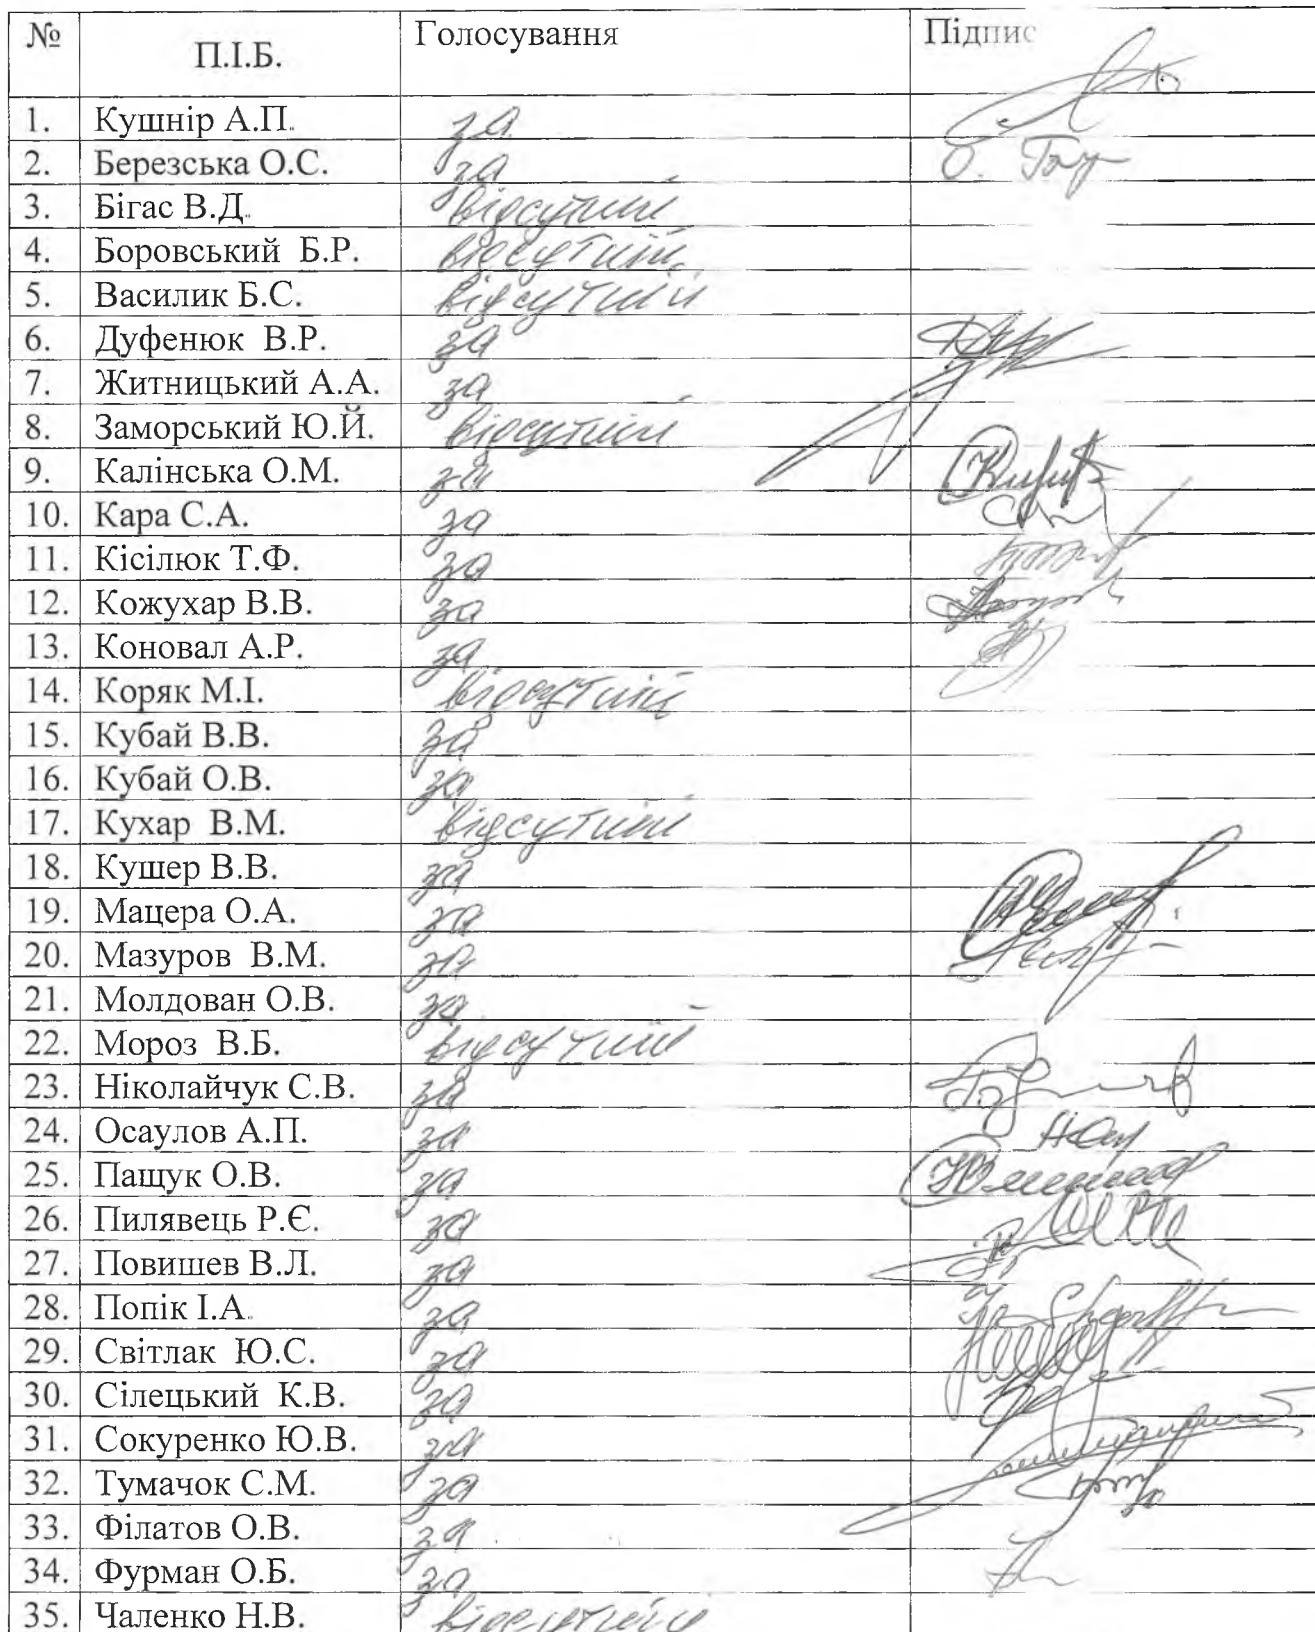 № П.І.Б. Голосування Підпис
1. Кушнір А.П. за
2. Березська О.С. за
3. Бігас В.Д. відсутній
4. Боровський Б.Р. відсутній
5. Василик Б.С. відсутній
6. Дуфенюк В.Р. за
7. Житницький А.А. за
8. Заморський Ю.Й. відсутній
9. Калінська О.М. за
10. Кара С.А. за
11. Кісілюк Т.Ф. за
12. Кожухар В.В. за
13. Коновал А.Р. за
14. Коряк М.І. відсутній
15. Кубай В.В. за
16. Кубай О.В. за
17. Кухар В.М. відсутній
18. Кушер В.В. за
19. Мацера О.А. за
20. Мазуров В.М. за
21. Молдован О.В. за
22. Мороз В.Б. відсутній
23. Ніколайчук С.В. за
24. Осаулов А.П. за
25. Пащук О.В. за
26. Пилявець Р.Є. за
27. Повишев В.Л. за
28. Попік І.А. за
29. Світлак Ю.С. за
30. Сілецький К.В. за
31. Сокуренко Ю.В. за
32. Тумачок С.М. за
33. Філатов О.В. за
34. Фурман О.Б. за
35. Чаленко Н.В. відсутній